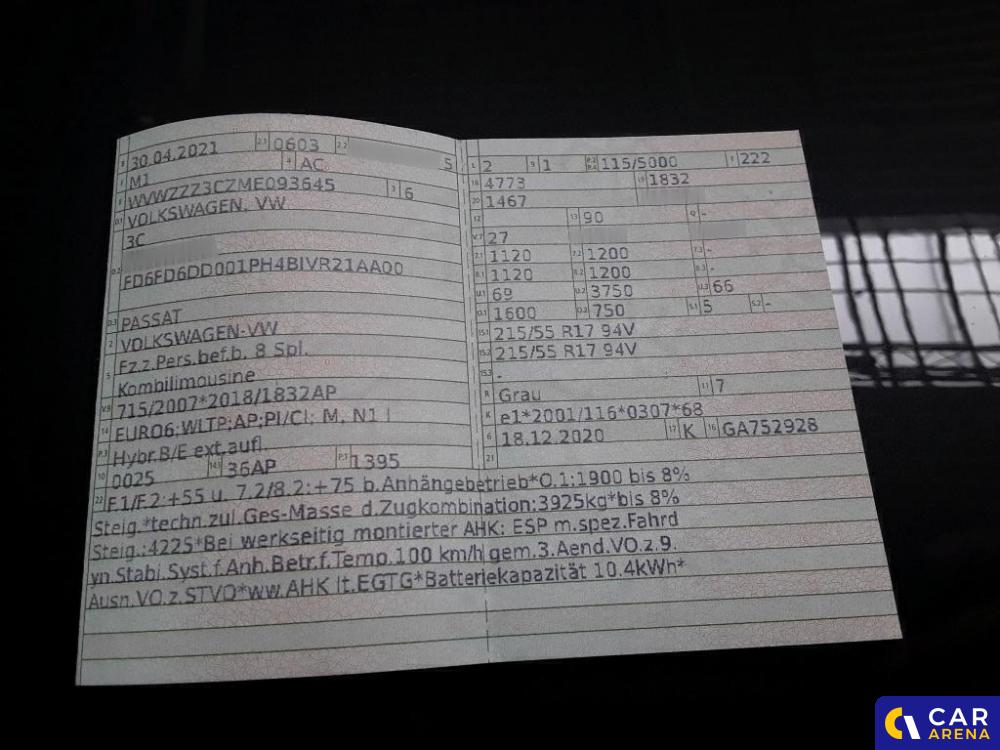 B 30.04.2021 2.1 0603 2.2 5
J M1 4 AC
E WVWZZZ3CZME093645 3 6
D.1 VOLKSWAGEN, VW
3C
D.2
FD6FD6DD001PH4BIVR21AA00
D.3 PASSAT
2 VOLKSWAGEN-VW
5 Fz.z.Pers.bef.b. 8 Spl.
Kombilimousine
V.9 715/2007*2018/1832AP
14 EURO6;WLTP;AP;PI/CI; M, N1 I
P.3 Hybr.B/E ext.aufl.
10 0025 14.1 36AP P.1 1395
L 2 9 1 P.2 P.4 115/5000 T 222
18 4773 19 1832
20 1467
12 13 90 Q -
V.7 27
7.1 1120 7.2 1200 7.3 -
8.1 1120 8.2 1200 8.3 -
U.1 69 U.2 3750 U.3 66
O.1 1600 O.2 750 S.1 5 S.2 -
15.1 215/55 R17 94V
15.2 215/55 R17 94V
15.3 -
R Grau 11 7
K e1*2001/116*0307*68
6 18.12.2020 17 K 16 GA752928
21
22 F.1/F.2:+55 u. 7.2/8.2:+75 b.Anhängebetrieb*O.1:1900 bis 8%
Steig.*techn.zul.Ges-Masse d.Zugkombination:3925kg*bis 8%
Steig.:4225*Bei werkseitig montierter AHK: ESP m.spez.Fahrd
yn.Stabi.Syst.f.Anh.Betr.f.Temp.100 km/h gem.3.Aend.VO.z.9.
Ausn.VO.z.STVO*ww.AHK lt.EGTG*Batteriekapazität 10.4kWh*
CAR
ARENA